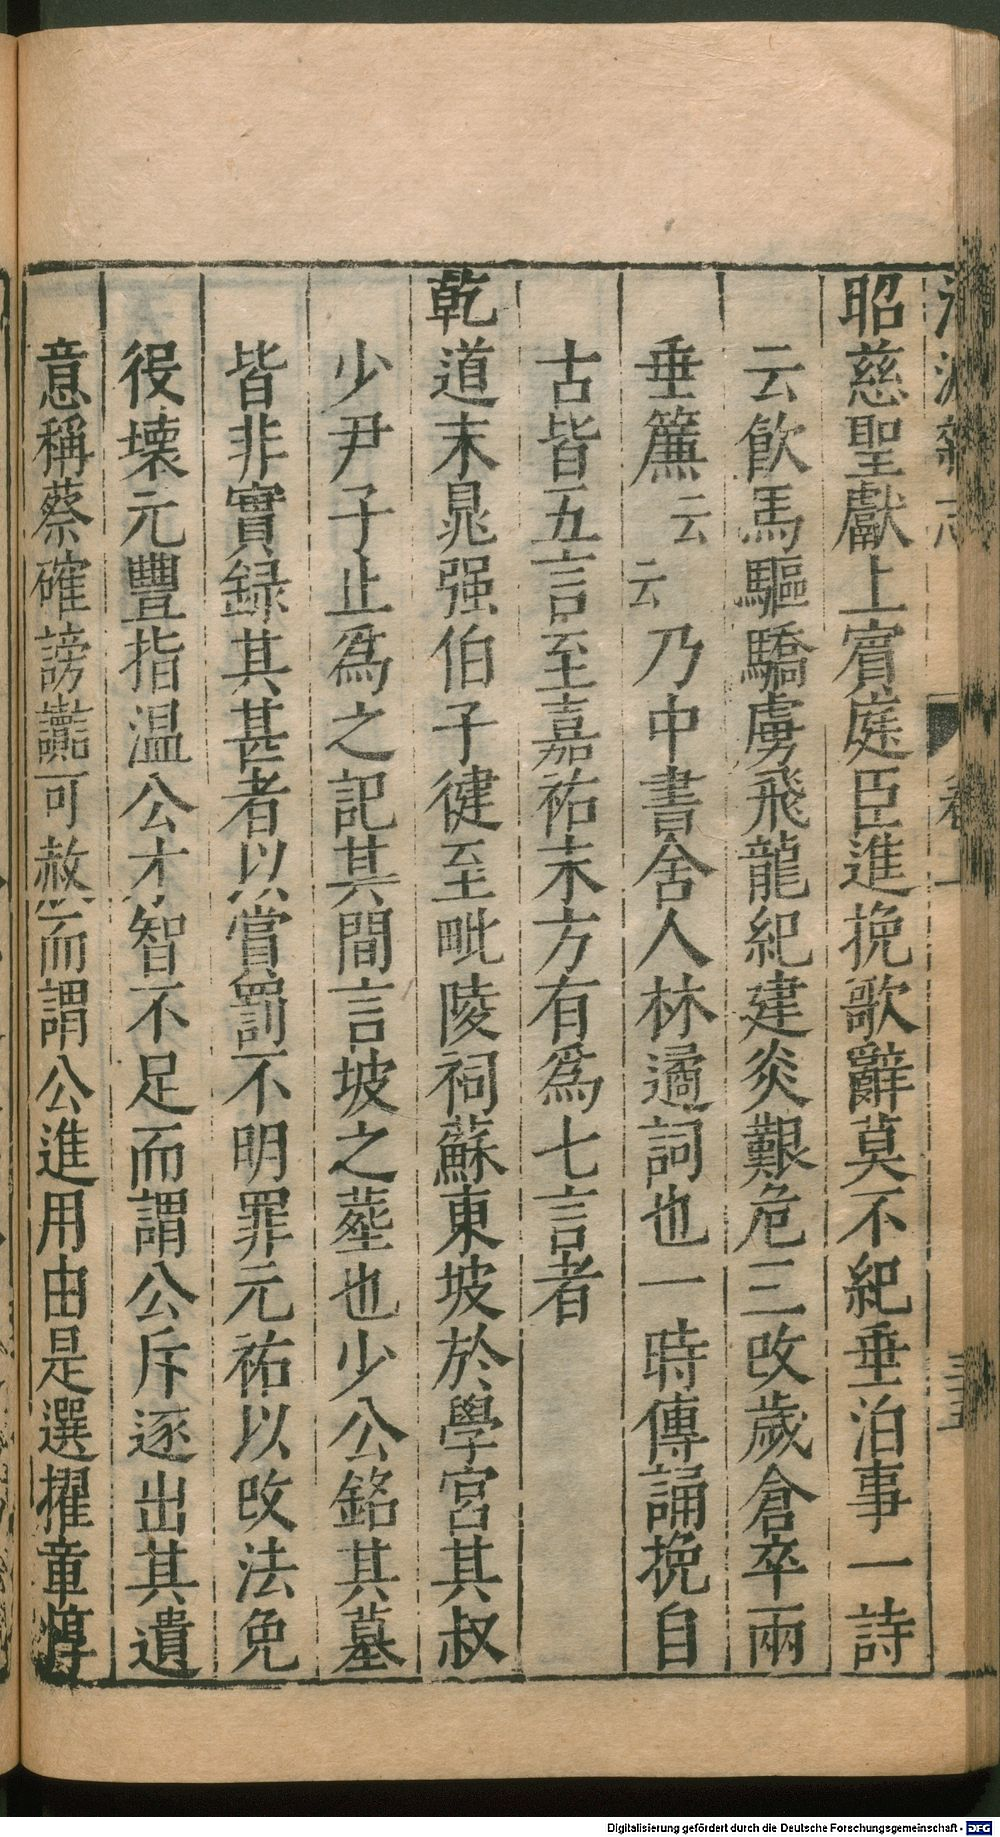 昭慈聖獻上賔庭臣進挽歌辭莫不紀垂泊事一詩
云飮馬驅驕虜飛龍紀建炎艱危三改歲倉卒兩
垂簾云云乃中書舍人林遹詞也一時傳誦挽自
古皆五言至嘉祐末方有爲七言者
乾道末晁强伯子健至毗陵祠蘇東坡於學宮其叔
少尹子止爲之記其間言坡之塟也少公銘其墓
皆非實録其甚者以賞罰不明罪元祐以改法免
役壊元豐指温公才智不足而謂公斥逐出其遺
意稱蔡確謗讟可赦而謂公進用由是選擢章惇
Digitalisierung gefördert durch die Deutsche Forschungsgemeinschaft - DFG